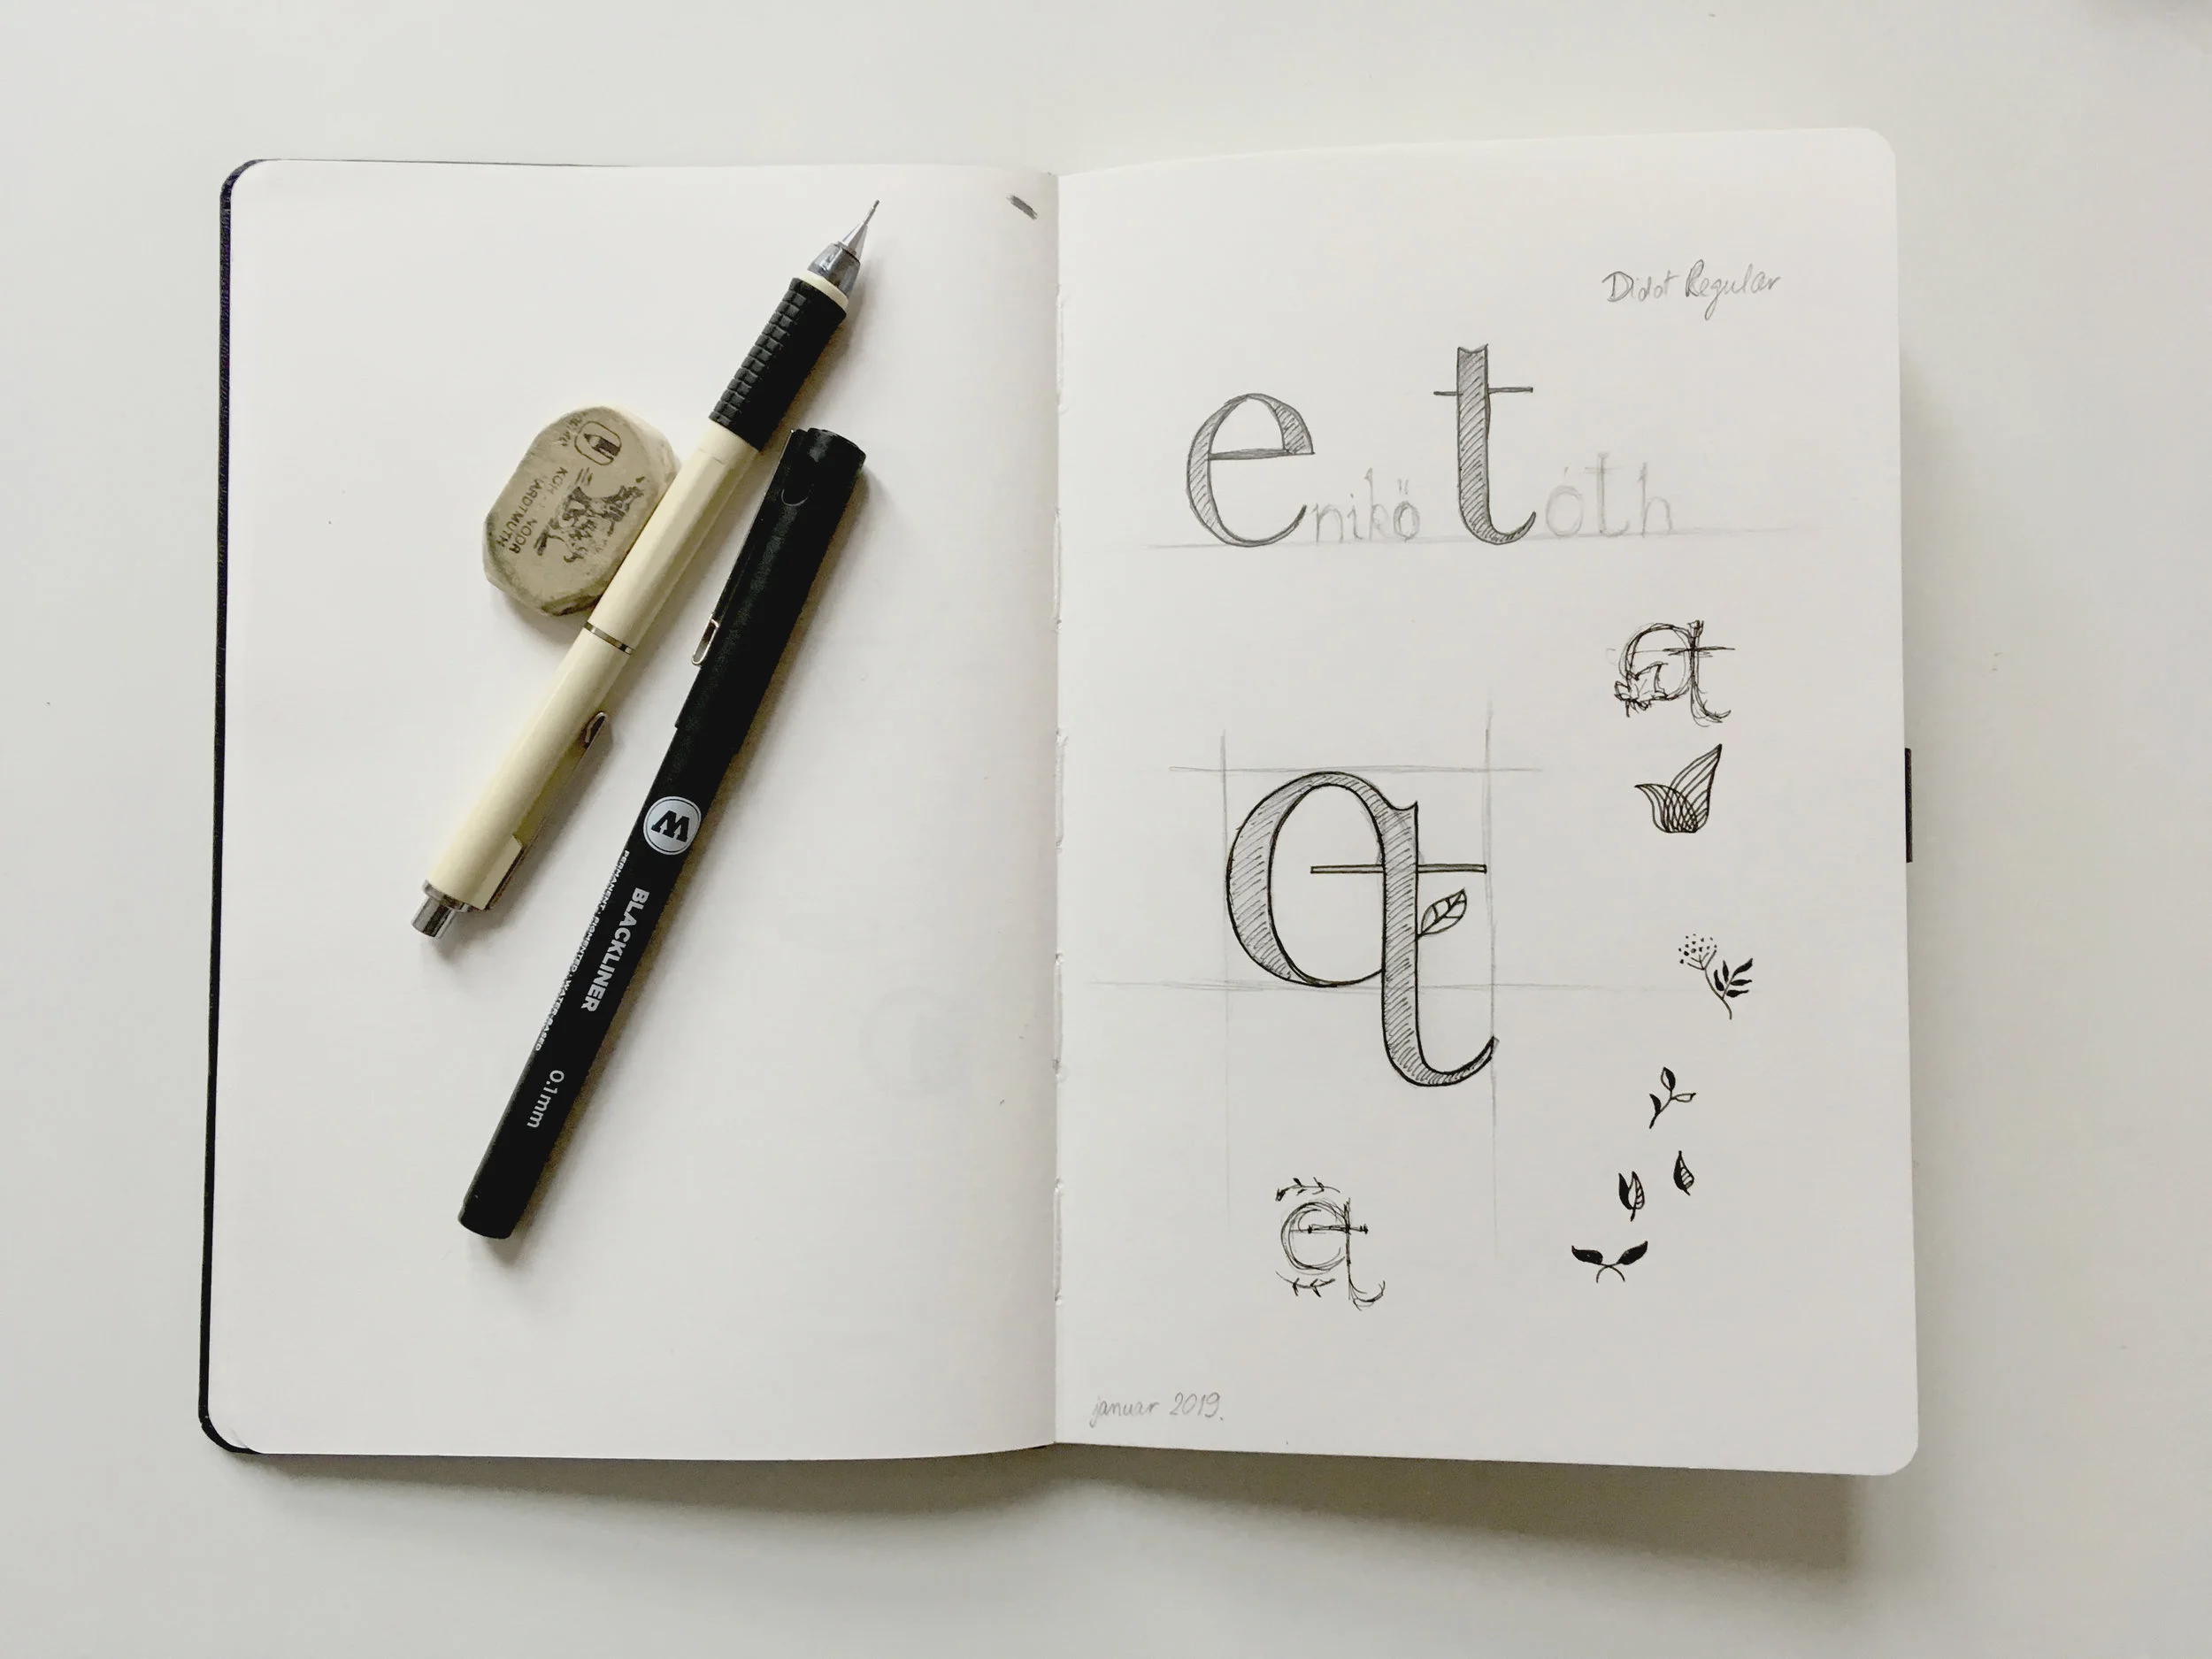 KOH-I-NOOR
HARDTMUTH
W
BLACKLINER
PERMANENT · PIGMENTED · WATER-BASED
0.1mm
Didot Regular
enikö tóth
januar 2019.